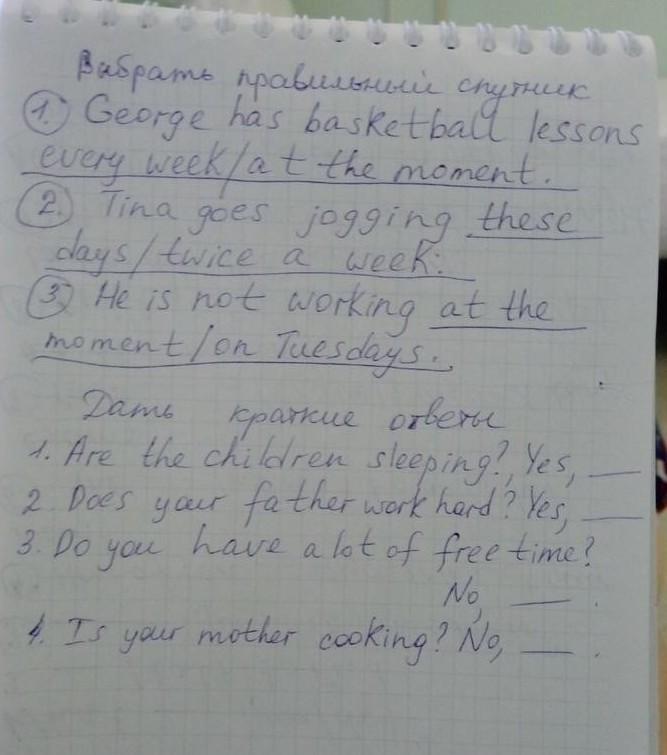 Выбрать правильный спутник
1. George has basketball lessons
every week/at the moment.
2. Tina goes jogging these
days/twice a week.
3. He is not working at the
moment/on Tuesdays.
Дать краткие ответы
1. Are the children sleeping? Yes, __
2. Does your father work hard? Yes, __
3. Do you have a lot of free time?
No, __.
4. Is your mother cooking? No, __.